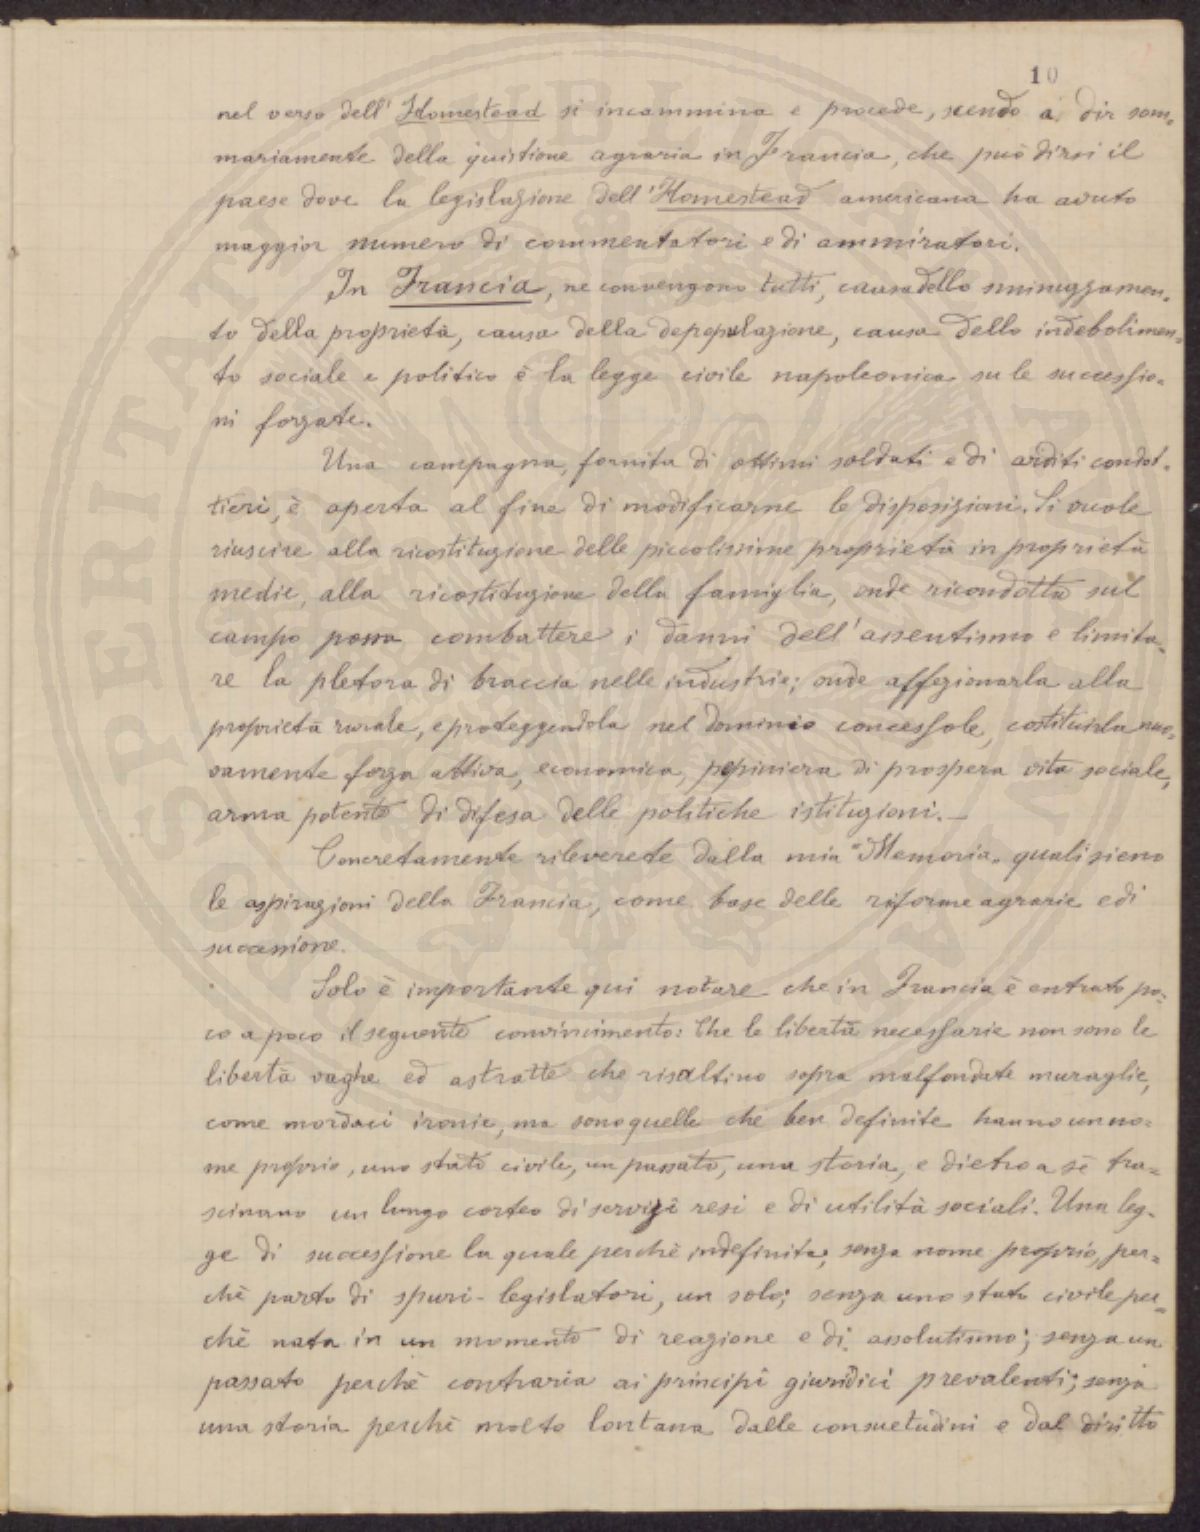 10
nel verso dell'Homestead si incammina e procede, scendo a dir som-
mariamente della quistione agraria in Francia, che può dirsi il
paese dove la legislazione dell'Homestead americana ha avuto
maggior numero di commentatori e di ammiratori.
In Francia, ne convengono tutti, causa dello sminuzzamen-
to della proprietà, causa della depopulazione, causa dello indebolimen-
to sociale e politico è la legge civile napoleonica su le successio-
ni forzate.
Una campagna, fornita di ottimi soldati e di arditi condot-
tieri, è aperta al fine di modificarne le disposizioni. Si vuole
riuscire alla ricostituzione delle piccolissime proprietà in proprietà
medie, alla ricostituzione della famiglia, onde ricondotta sul
campo possa combattere i danni dell'assentismo e limita-
re la pletora di braccia nelle industrie; onde affezionarla alla
proprietà rurale, e proteggendola nel dominio concessole, costituirla nuo-
vamente forza attiva, economica, pepiniera di prospera vita sociale,
arma potente di difesa delle politiche istituzioni. —
Concretamente rileverete dalla mia "Memoria" quali sieno
le aspirazioni della Francia, come base delle riforme agrarie e di
successione.
Solo è importante qui notare che in Francia è entrato po-
co a poco il seguente convincimento: Che le libertà necessarie non sono le
libertà vaghe ed astratte che risaltino sopra malfondate muraglie,
come mordaci ironie, ma sono quelle che ben definite hanno un no-
me proprio, uno stato civile, un passato, una storia, e dietro a sè tra-
scinano un lungo corteo di servizi resi e di utilità sociali. Una leg-
ge di successione la quale perchè indefinita, senza nome proprio, per-
chè parto di spuri-legislatori, un solo; senza uno stato civile per-
chè nata in un momento di reazione e di assolutismo; senza un
passato perchè contraria ai principi giuridici prevalenti; senza
una storia perchè molto lontana dalle consuetudini e dal diritto